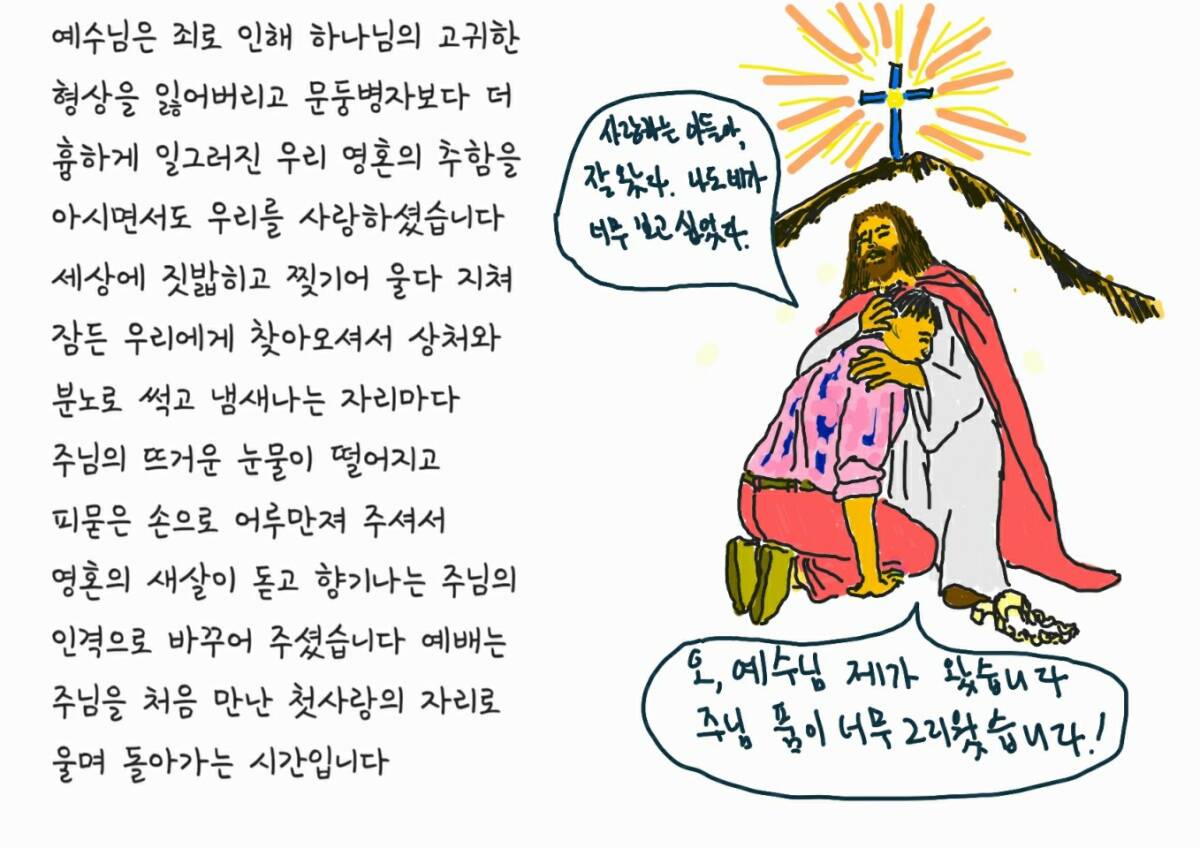 예수님은 죄로 인해 하나님의 고귀한
형상을 잃어버리고 문둥병자보다 더
흉하게 일그러진 우리 영혼의 추함을
아시면서도 우리를 사랑하셨습니다
세상에 짓밟히고 찢기어 울다 지쳐
잠든 우리에게 찾아오셔서 상처와
분노로 썩고 냄새나는 자리마다
주님의 뜨거운 눈물이 떨어지고
피묻은 손으로 어루만져 주셔서
영혼의 새살이 돋고 향기나는 주님의
인격으로 바꾸어 주셨습니다 예배는
주님을 처음 만난 첫사랑의 자리로
울며 돌아가는 시간입니다
사랑하는 아들아,
잘 왔다. 나도 네가
너무 보고 싶었다.
오, 예수님 제가 왔습니다
주님 품이 너무 그리웠습니다!